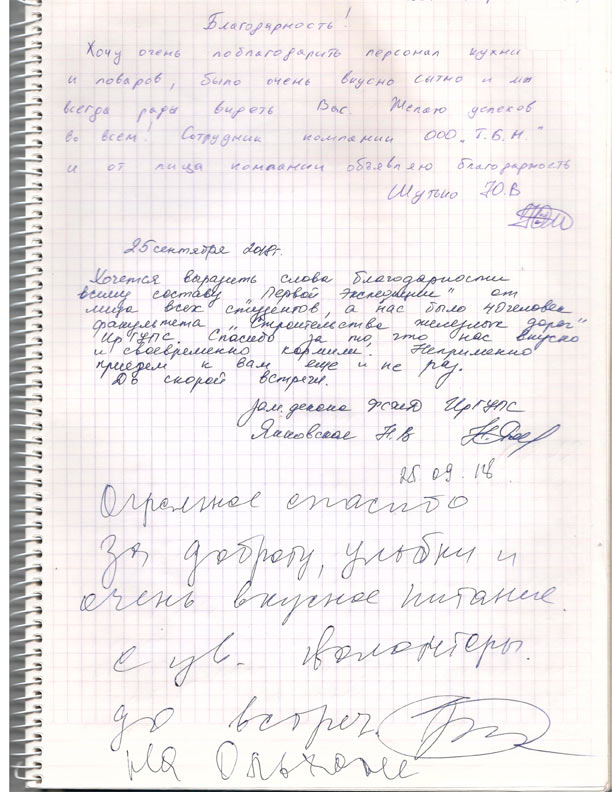 Благодарность!
Хочу очень поблагодарить персонал кухни
и поваров, было очень вкусно сытно и мы
всегда рады видеть Вас. Желаю успехов
во всем! Сотрудник компании ООО „Т.Б.Н."
и от лица компании объявляю благодарность
Шутько Ю.В
25 сентября 2018г.
Хочется выразить слова благодарности
всему составу „Первой Экспедиции" от
лица всех студентов, а нас было 40 человек
факультета "Строительства железных дорог"
ИрГУПС. Спасибо за то, что нас вкусно
и своевременно кормили. Неприменно
приедем к вам еще и не раз.
До скорой встречи.
Зам. декана ФСЖД ИрГУПС
Янковская Н.В
25.09.18.
Огромное спасибо
За доброту, улыбки и
очень вкусное питание.
С ув. волонтеры.
до встреч.
на Ольхоне